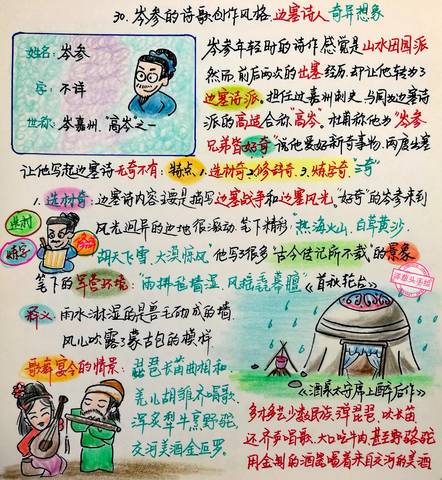 30. 岑参的诗歌创作风格 边塞诗人 奇异想象
姓名: 岑参
字: 不详
世称: 岑嘉州, "高岑"之一
岑参年轻时的诗作感觉是山水田园派
然而,前后两次的出塞经历,却让他转为了
边塞诗派。担任过嘉州刺史,与同为边塞诗
派的高适合称"高岑"。
"岑参
兄弟皆好奇"说他爱好新奇事物,两度出塞
让他写起边塞诗无奇不有: 特点 1.选材奇 2.修辞奇 3.炼字奇 "三奇"
1. 选材奇: 边塞诗内容主要是描写边塞战争和边塞风光,"好奇"的岑参来到
风光迥异的边地很激动,笔下精彩:"热海火山、白草黄沙、
胡天飞雪、大漠惊风"他写了很多"古今传记所不载"的景象
选材
炼字
修辞
笔下的军营环境: "雨拼毡墙湿,风摇毳幕膻"《首秋轮台》
释义 雨水淋湿的是兽毛砌成的墙
风儿吹露了蒙古包的模样
歌舞宴会的情景: 琵琶长笛曲相和
羌儿胡雏齐唱歌
浑炙犁牛烹野驼
交河美酒金叵罗。
《酒泉太守席上醉后作》
多才多艺少数民族弹琵琶、吹长笛
还齐声唱歌,大口吃牛肉,甚至野骆驼
用金制的酒杯喝着来自交河的美酒